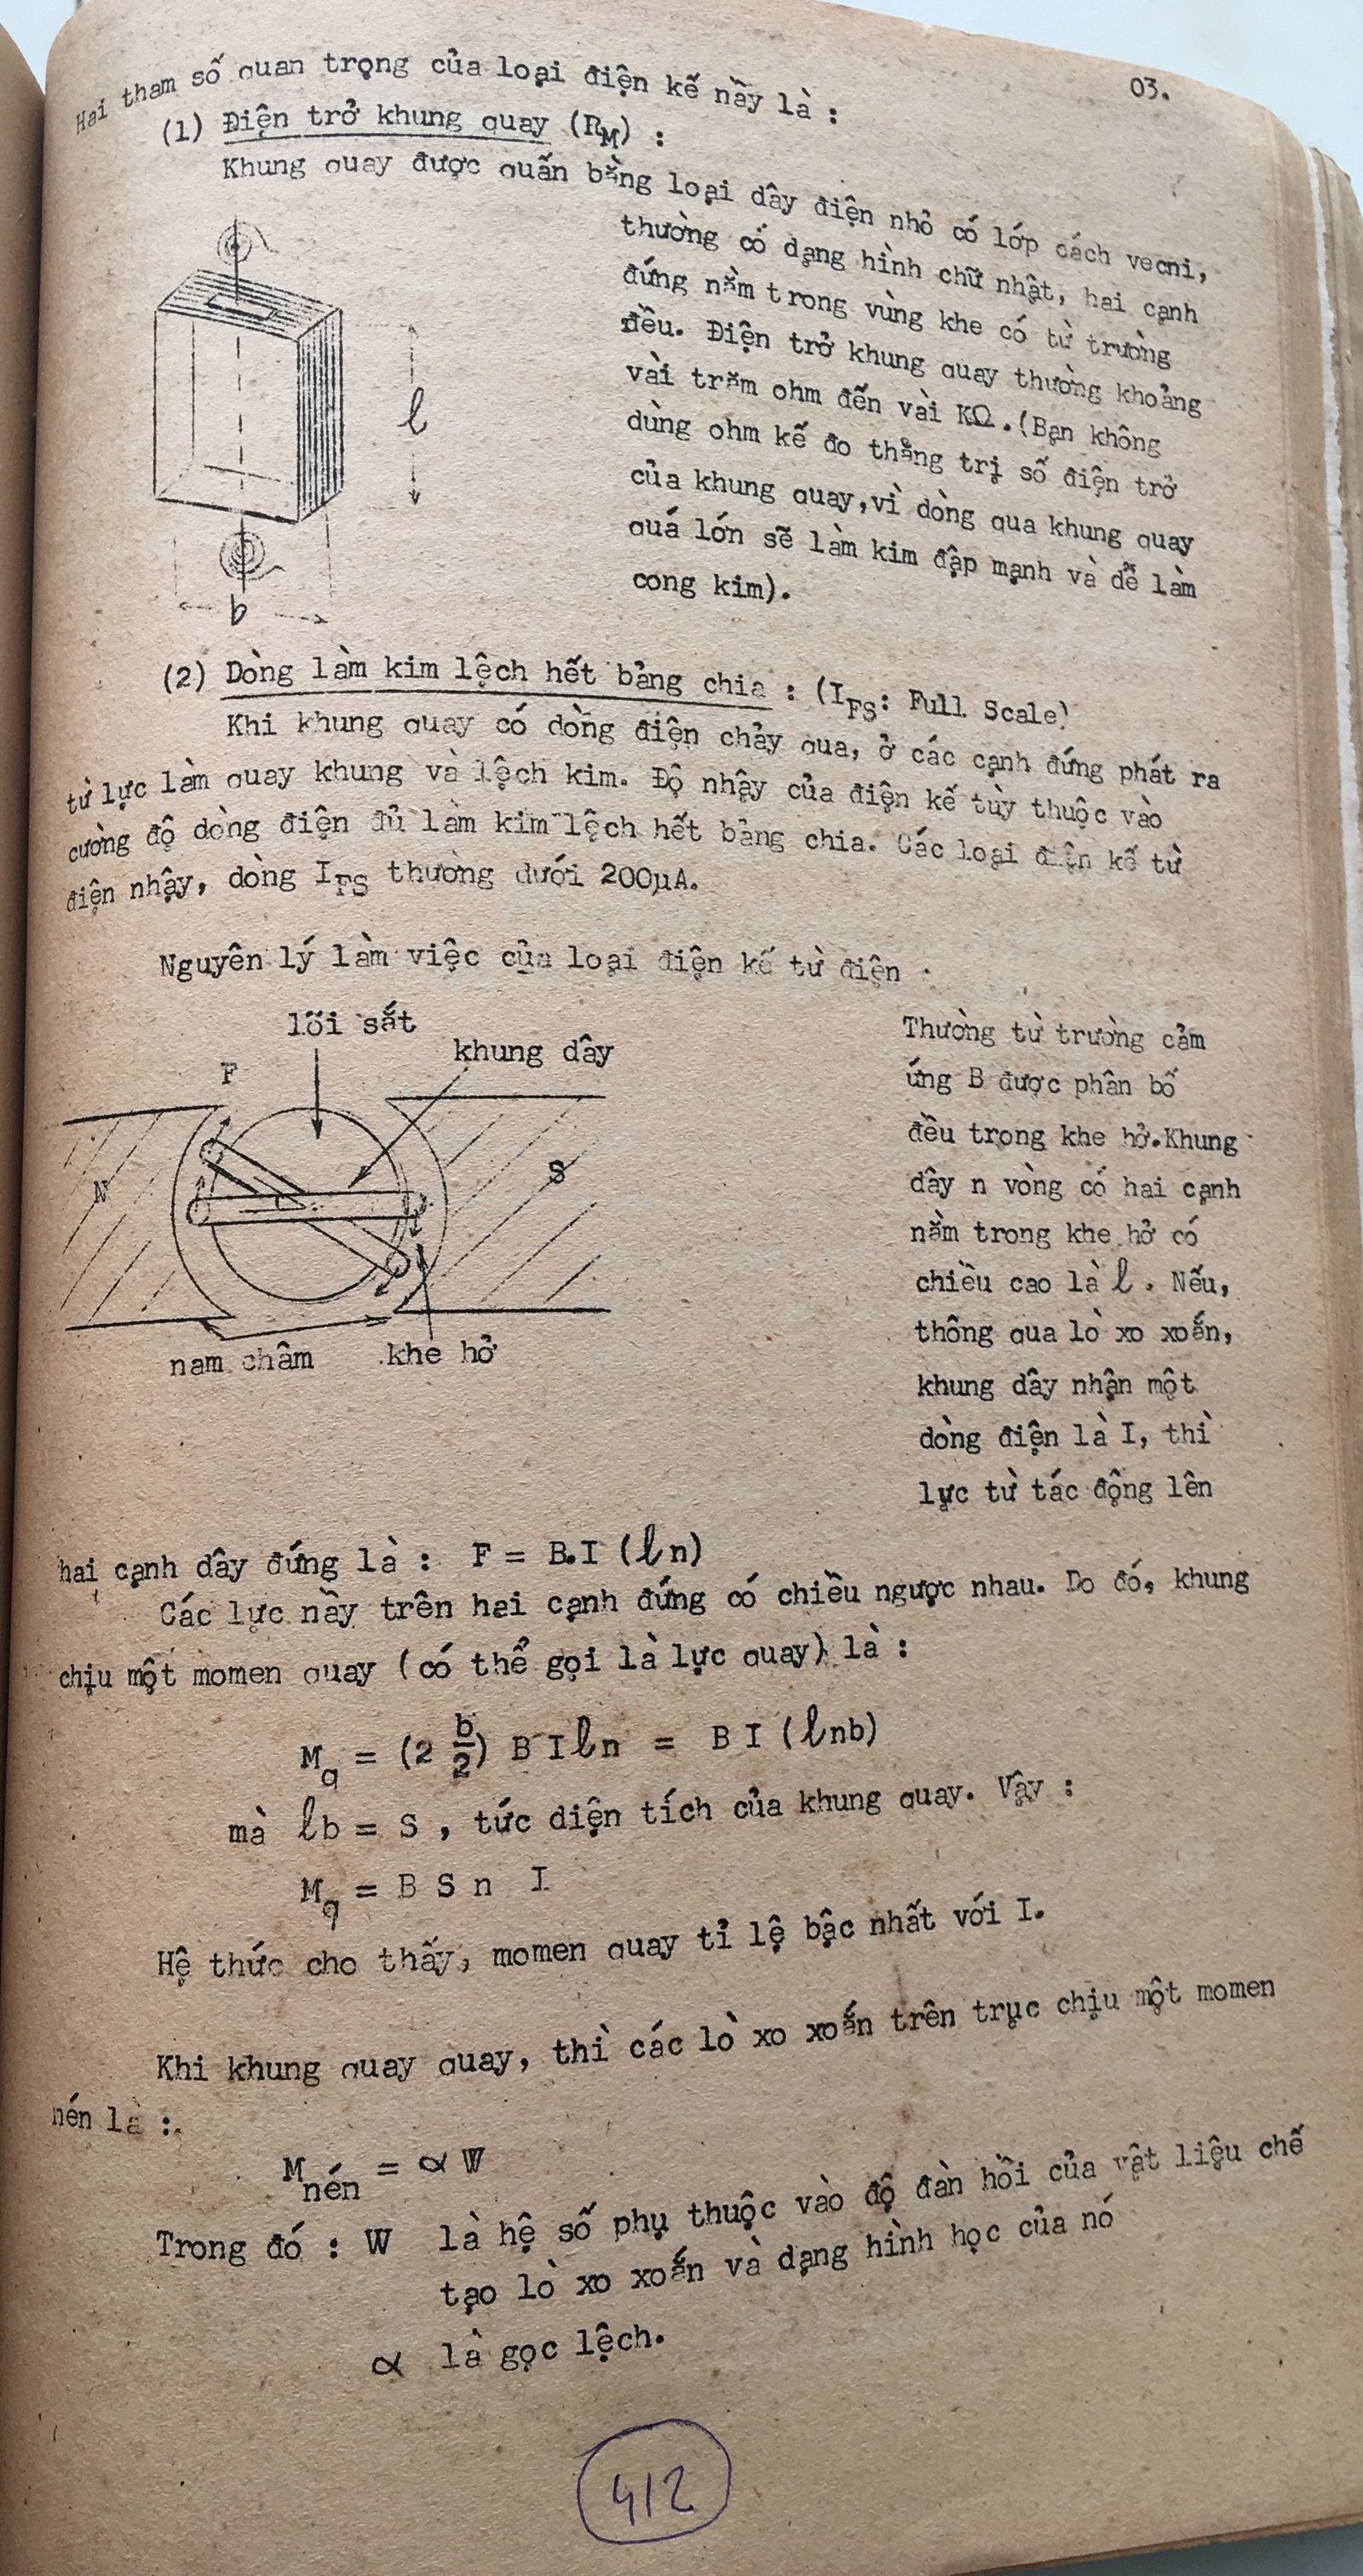 03.
Hai tham số quan trọng của loại điện kế nầy là :
(1) Điện trở khung quay (RM) :
Khung quay được quấn bằng loại dây điện nhỏ có lớp cách vecni,
thường có dạng hình chữ nhật, hai cạnh
đứng nằm trong vùng khe có từ trường
đều. Điện trở khung quay thường khoảng
vài trăm ohm đến vài KΩ.(Bạn không
dùng ohm kế đo thẳng trị số điện trở
của khung quay,vì dòng qua khung quay
quá lớn sẽ làm kim đập mạnh và dễ làm
cong kim).
l
b
(2) Dòng làm kim lệch hết bảng chia : (IFS: Full Scale)
Khi khung quay có dòng điện chảy qua, ở các cạnh đứng phát ra
từ lực làm quay khung và lệch kim. Độ nhậy của điện kế tùy thuộc vào
cường độ dòng điện đủ làm kim lệch hết bảng chia. Các loại điện kế từ
điện nhậy, dòng IFS thường dưới 200µA.
Nguyên lý làm việc của loại điện kế từ điện :
lõi sắt
khung dây
F
N
S
nam châm
khe hở
Thường từ trường cảm
ứng B được phân bố
đều trong khe hở.Khung
dây n vòng có hai cạnh
nằm trong khe hở có
chiều cao là l. Nếu,
thông qua lò xo xoắn,
khung dây nhận một
dòng điện là I, thì
lực từ tác động lên
hai cạnh dây đứng là : F = B.I (ln)
Các lực nầy trên hai cạnh đứng có chiều ngược nhau. Do đó, khung
chịu một momen quay (có thể gọi là lực quay) là :
Mq = (2 b/2) B I l n = B I (lnb)
mà lb = S , tức diện tích của khung quay. Vậy :
Mq = B S n I
Hệ thức cho thấy, momen quay tỉ lệ bậc nhất với I.
Khi khung quay quay, thì các lò xo xoắn trên trục chịu một momen
nén là :
Mnén = α W
Trong đó : W là hệ số phụ thuộc vào độ đàn hồi của vật liệu chế
tạo lò xo xoắn và dạng hình học của nó
α là gọc lệch.
412